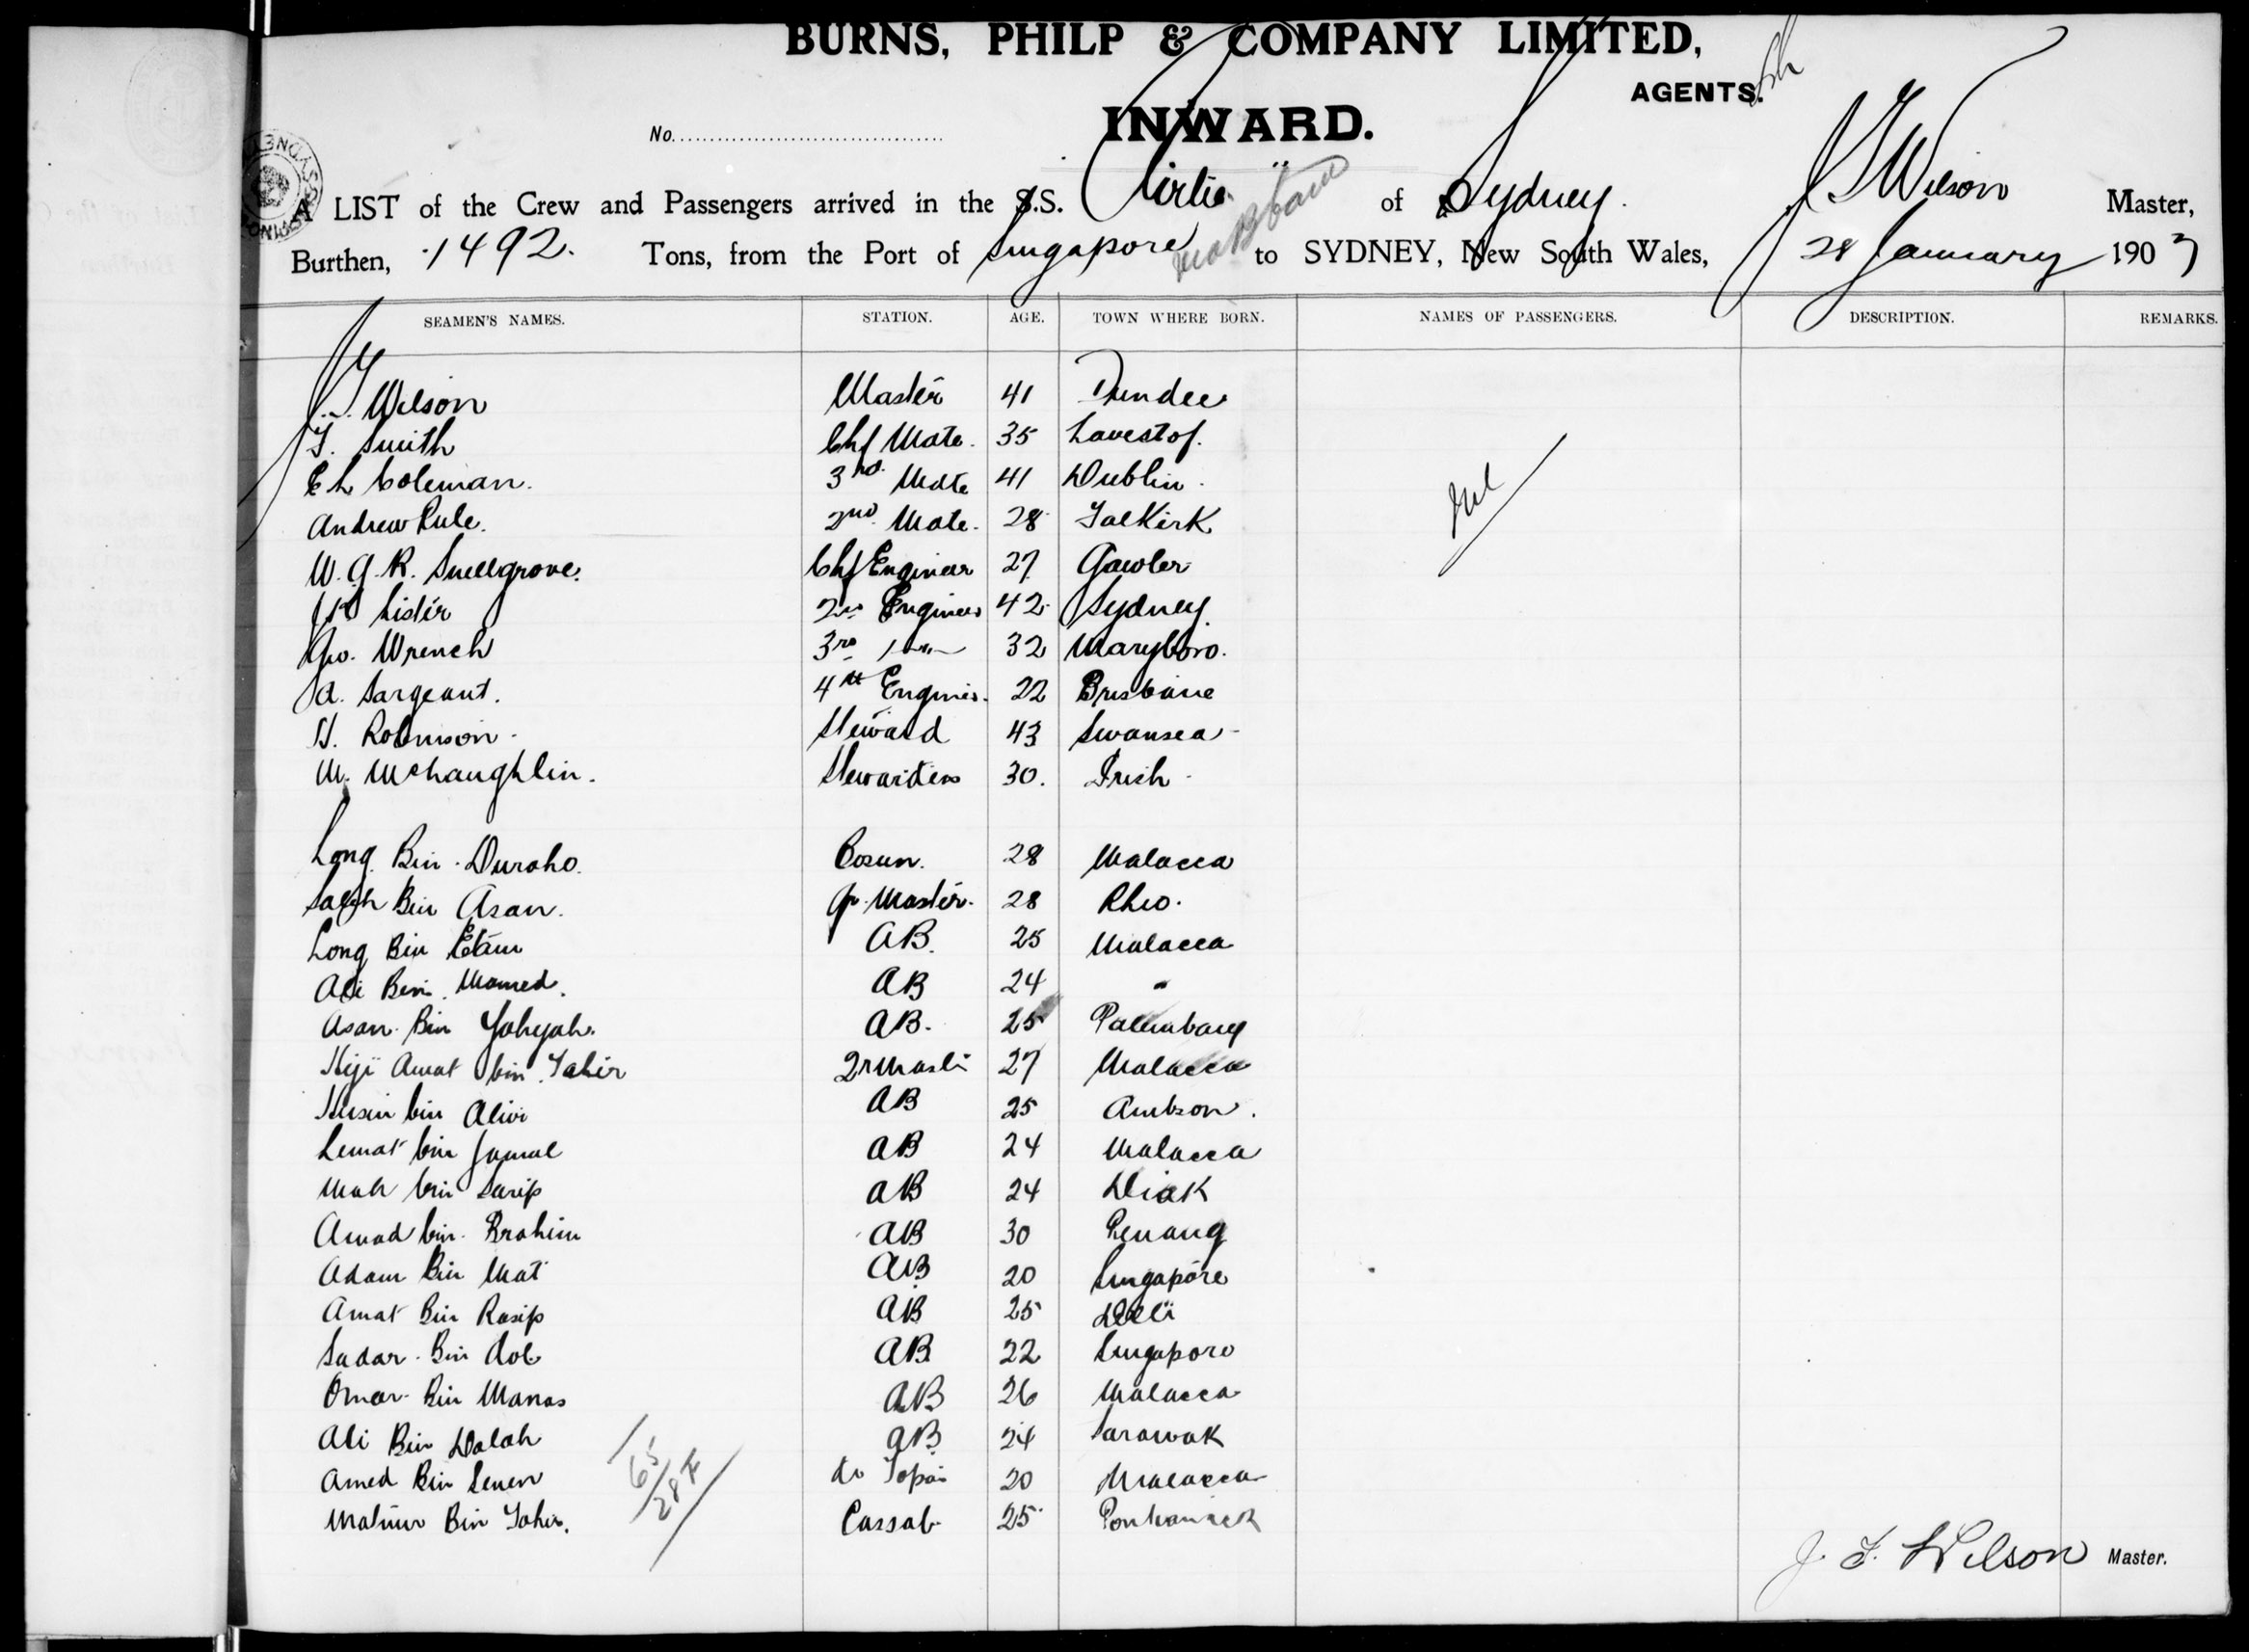 BURNS, PHILP & COMPANY LIMITED,
AGENTS.
INWARD.
No.
A LIST of the Crew and Passengers arrived in the S.S. Airlie of Sydney. J T Wilson Master,
Burthen, 1492. Tons, from the Port of Singapore to SYDNEY, New South Wales, 28 January 1903
SEAMEN'S NAMES. STATION. AGE. TOWN WHERE BORN. NAMES OF PASSENGERS. DESCRIPTION. REMARKS.
J. T. Wilson Master 41 Dundee
T. Smith Chf Mate. 35 Lowestof.
E L Coleman. 3rd Mate 41 Dublin.
Nil
Andrew Rule. 2nd Mate. 28 Falkirk
W. G. R. Snellgrove. Chf Engineer 27 Gawler
Lister 2nd Engineer 42 Sydney.
Geo. Wrench 3rd 32 Maryboro.
A. Sargeant. 4th Engineer. 22 Brisbane
H. Robinson. Steward 43 Swansea
M. McLaughlin. Stewardess 30. Irish
Long Bin Duraho. Bosun. 28 Malacca
Saleh Bin Asan. Qr. Master. 28 Rhio.
Long Bin Etam AB. 25 Malacca
Ali Bin Mamed. AB 24 "
Asan Bin Yahyah. AB. 25 Palembang
Hiji Amat bin Tahir Qr Master 27 Malacca
Husin bin Aliwi AB 25 Ambon.
Lemat bin Jamal AB 24 Malacca
Mah bin Sarip AB 24 Diak
Amad bin Brahim AB 30 Penang
Adam Bin Mat AB 20 Singapore
Amat Bin Rasip AB 25 Delli
Sadar Bin Dol AB 22 Singapore
Omar Bin Manas AB 26 Malacca
Ali Bin Dalah AB 24 Sarawak
Amed Bin Senen do Topas 20 Malacca
65
28 F
Matiuw Bin Tahir. Cassab 25 Pontianack
J. T. Wilson Master.